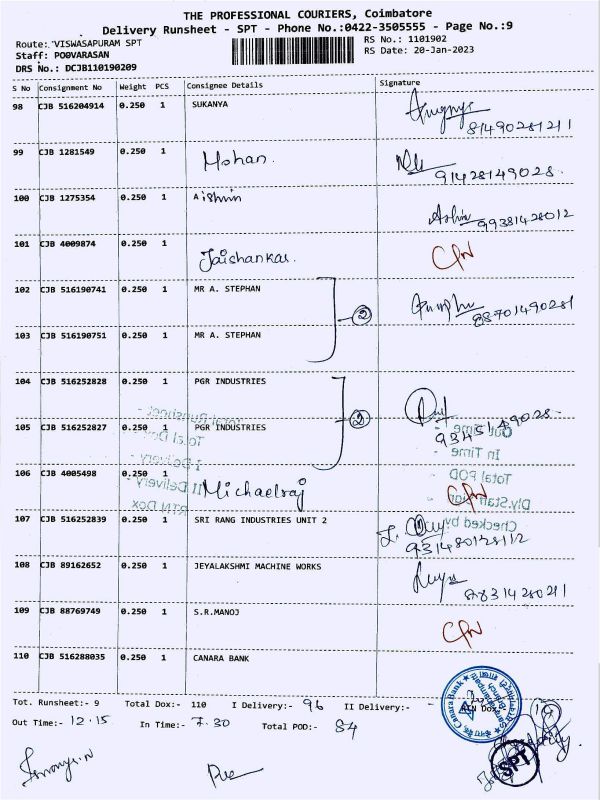 THE PROFESSIONAL COURIERS, Coimbatore
Delivery Runsheet - SPT - Phone No.:0422-3505555 - Page No.:9
Route: VISWASAPURAM SPT
RS No.: 1101902
Staff: POOVARASAN
RS Date: 20-Jan-2023
DRS No.: DCJB110190209
S No Consignment No Weight PCS Consignee Details Signature
98 CJB 516204914 0.250 1 SUKANYA
81490281211
99 CJB 1281549 0.250 1 Mohan.
91428149028.
100 CJB 1275354 0.250 1 Aishwin
Ashin 99381428012
101 CJB 4009874 0.250 1 Jaishankar.
102 CJB 516190741 0.250 1 MR A. STEPHAN
2
88701490281
103 CJB 516190751 0.250 1 MR A. STEPHAN
104 CJB 516252828 0.250 1 PGR INDUSTRIES
2
9345149028-
Total Runsheet -
Out Time -
105 CJB 516252827 0.250 1 PGR INDUSTRIES
In Time -
I Delivery -
Total POD -
106 CJB 4005498 0.250 1 Michaelraj
II Delivery -
RTN Dox
Checked by
107 CJB 516252839 0.250 1 SRI RANG INDUSTRIES UNIT 2
93148128112
108 CJB 89162652 0.250 1 JEYALAKSHMI MACHINE WORKS
8831428021
109 CJB 88769749 0.250 1 S.R.MANOJ
110 CJB 516288035 0.250 1 CANARA BANK
Tot. Runsheet:- 9 Total Dox:- 110 I Delivery:- 96 II Delivery:- -
Out Time:- 12.15 In Time:- 7.30 Total POD:- 84
Canara Bank
SPT